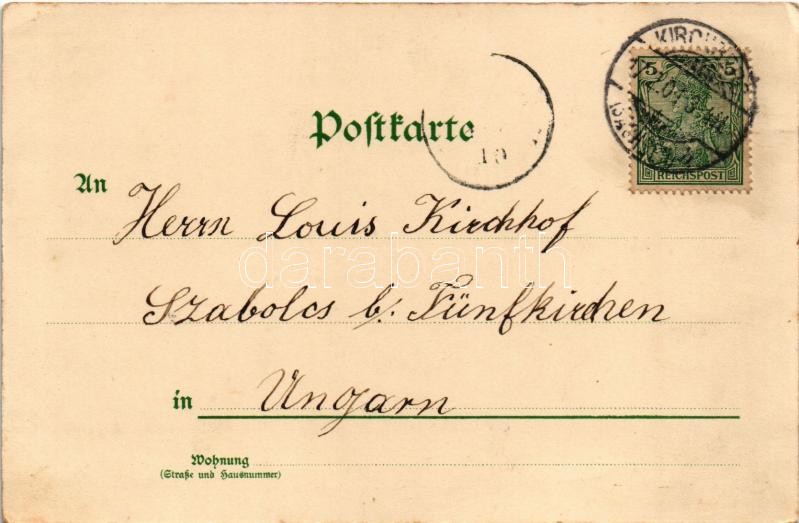 5 5
REICHSPOST
Postkarte
10
An Herrn Louis Kirchhof
darabanth
Szabolcs b: Fünfkirchen
in Ungarn
Wohnung
(Straße und Hausnummer)